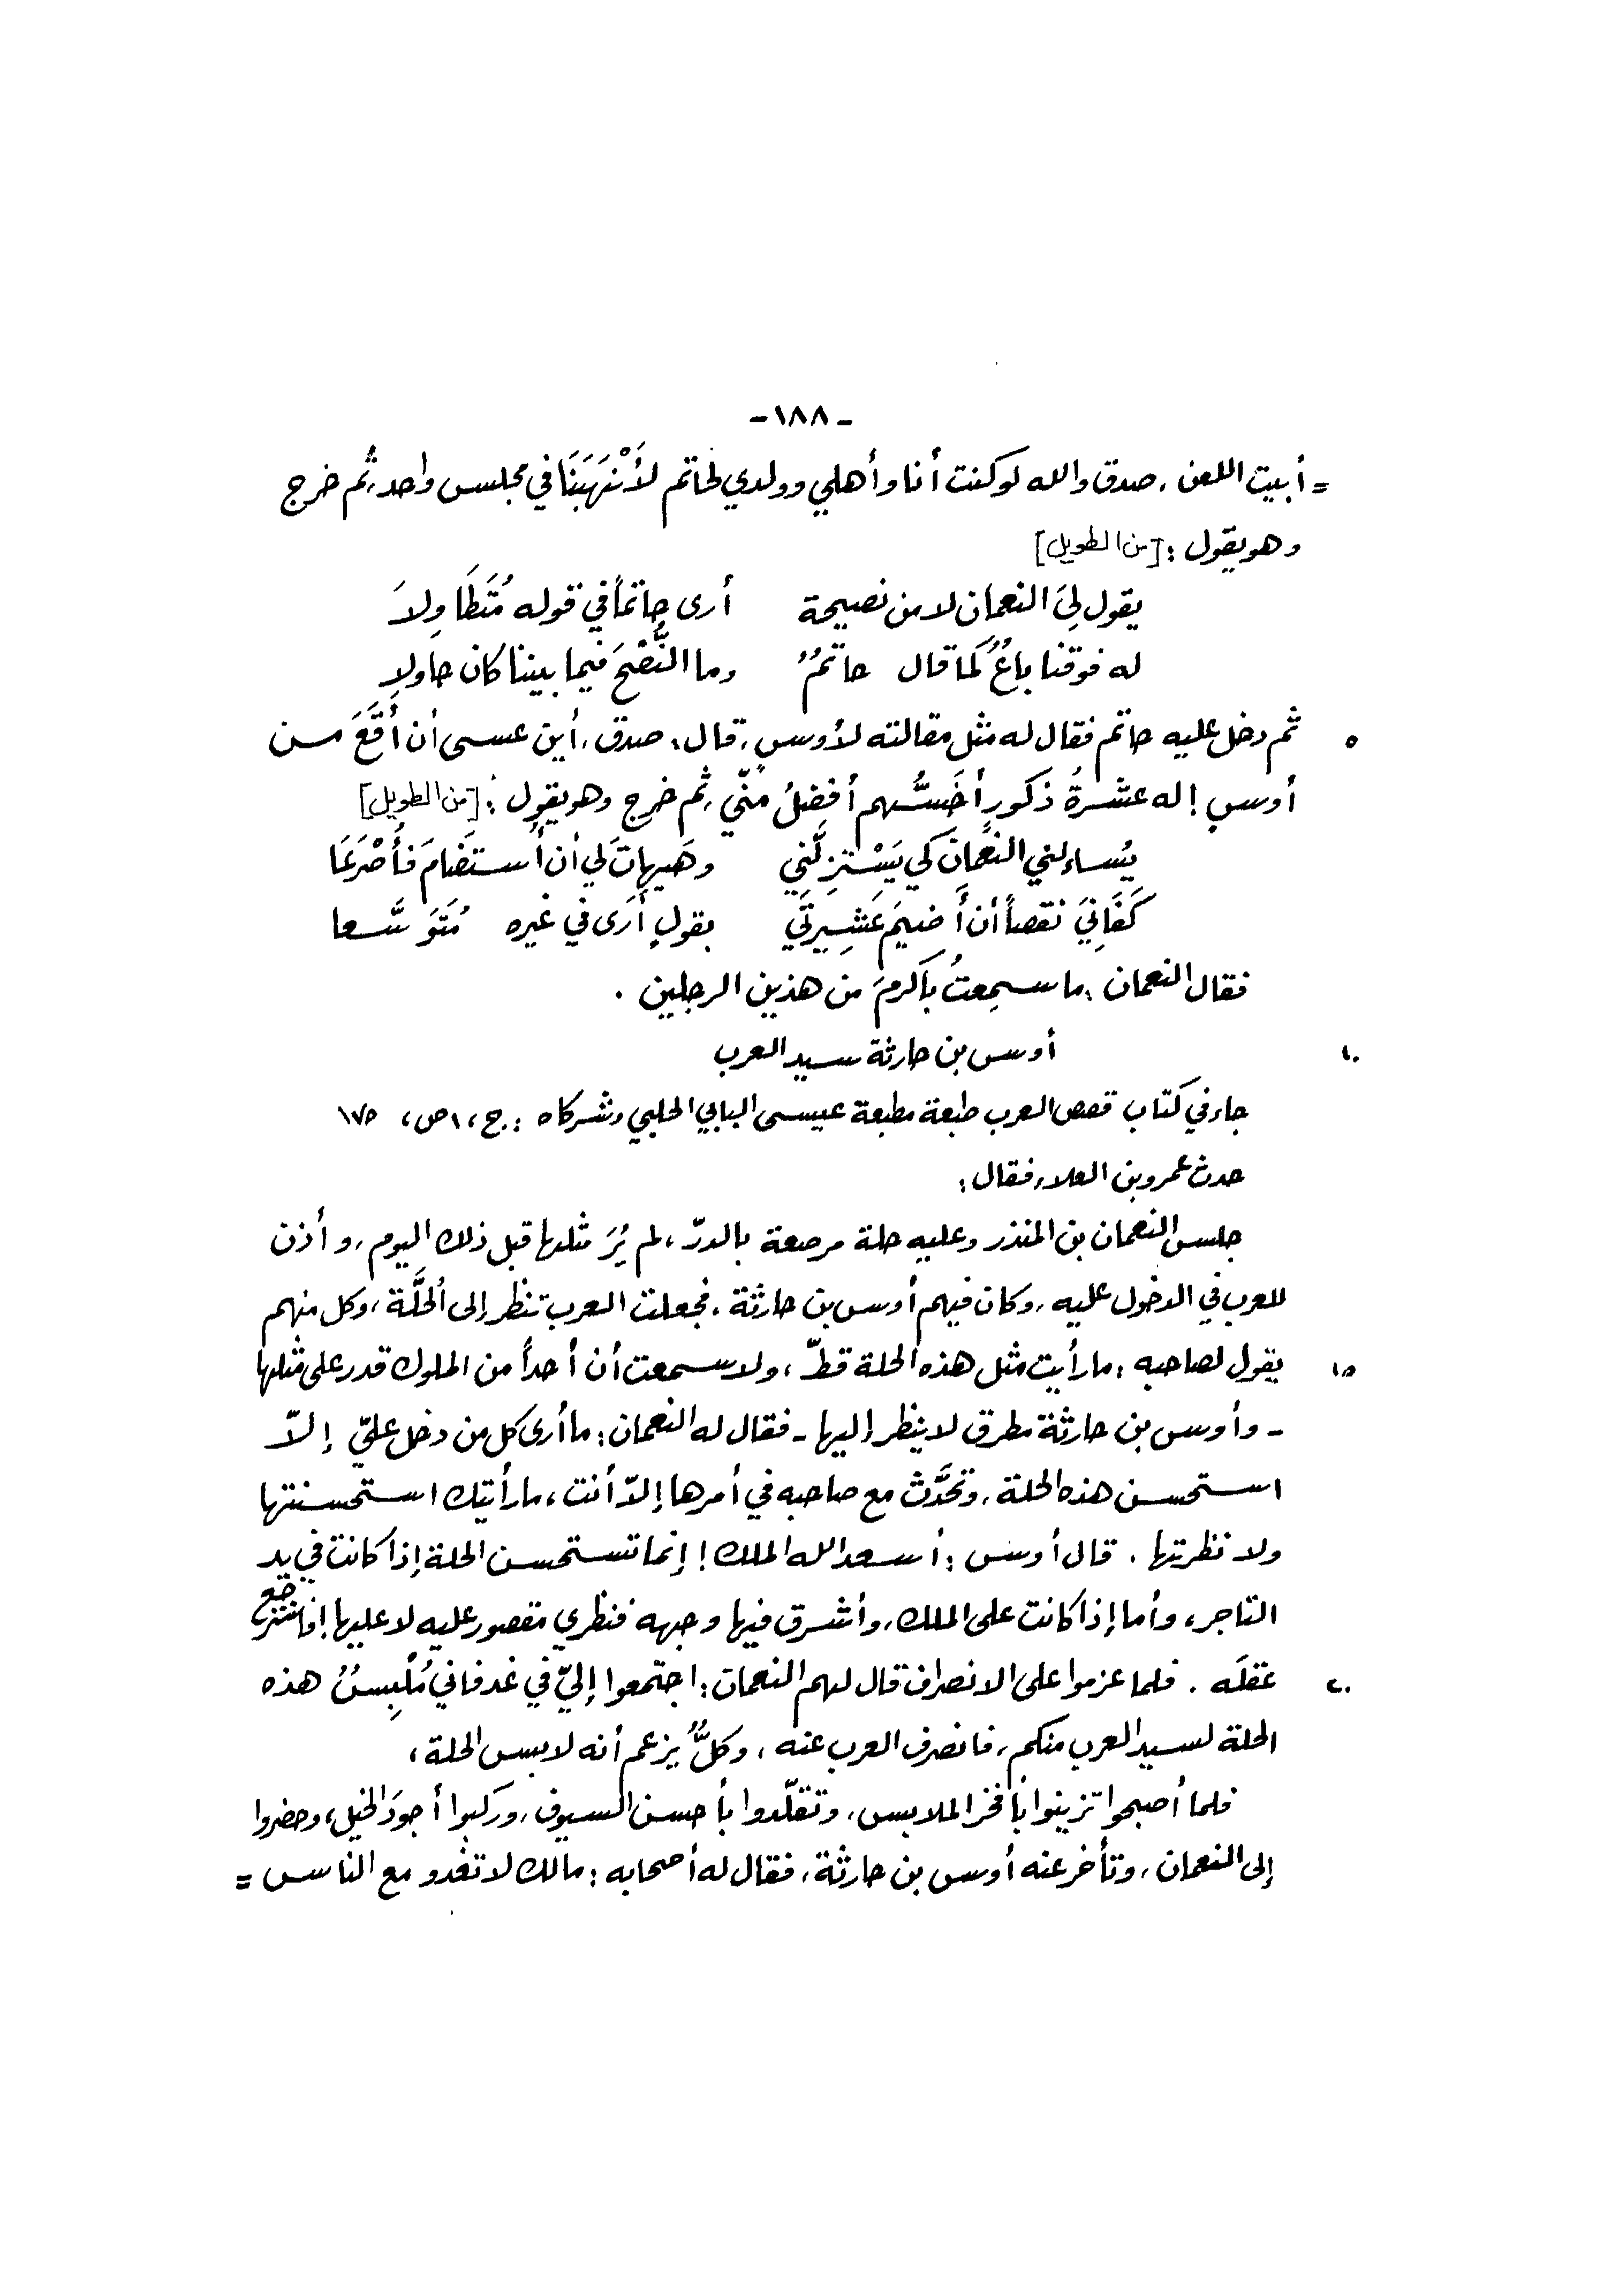 -١٨٨-
= أبيت اللعن، صدق والله لو كنت أنا وأهلي وولدي لحاتم لأَنْهَبَنَا في مجلس واحد، ثم خرج
وهو يقول : [من الطويل]
يقول لِيَ النعمان لا من نصيحة أرى حاتماً في قوله مُتَطَاوِلاَ
له فوقنا باعٌ كما قال حاتمٌ وما النُّصْحَ فيما بيننا كان حاولا
٥ ثم دخل عليه حاتم فقال له مثل مقالته لأوسٍ، قال: صدق، أين عسى أن أَقَعَ مــن
أوسٍ! له عشرةُ ذكورٍ أخَسُّهم أفضلُ منّي، ثم خرج وهو يقول : [من الطويل]
يُسائلني النعمانَ كي يَسْتزِلَّني وهَيهاتَ لي أن أُستَضَامَ فأُصْرَعَا
كَفَانِيَ نقصاً أن أَضيمَ عَشِيرتَي بقولٍ أرَى في غيره مُتَوَسَّعا
فقال النعمان : ما سمِعتُ بأكرمَ من هذين الرجلين .
١٠ أوس بن حارثة سيد العرب
جاء في كتاب قصص العرب طبعة مطبعة عيسى البابي الحلبي وشركاه : ج، ١ ص، ١٧٥
حدث عمرو بن العلاء فقال :
جلس النعمان بن المنذر وعليه حلة مرصعة بالدرّ، لم يُرَ مثلها قبل ذلك اليوم، وأذن
للعرب في الدخول عليه، وكان فيهم أوس بن حارثة، فجعلت العرب تنظر إلى الحُلَّة، وكل منهم
١٥ يقول لصاحبه : ما رأيت مثل هذه الحلة قطّ، ولا سمعت أن أحداً من الملوك قدر على مثلها
- وأوس بن حارثة مطرق لا ينظر إليها - فقال له النعمان: ما أرى كل من دخل عليّ إلاّ
استحسن هذه الحلة، وتحَّدث مع صاحبه في أمرها إلاّ أنت، ما رأيتك استحسنتها
ولا نظرتها . قال أوس : أسعد الله الملك! إنما تستحسن الحلة إذا كانت في يد
التاجر، وأما إذا كانت على الملك، وأشرق فيها وجهه فنظري مقصور عليه لا عليها!
٢٠ عقلَه . فلما عزموا على الانصراف قال لهم النعمان : اجتمعوا إليّ في غد فاني مُلْبِسٌ هذه
الحلة لسيد العرب منكم، فانصرف العرب عنه، وكلٌّ يزعم أنه لابس الحلة،
فلما أصبحوا تزينوا بأفخر الملابس، وتقلّدوا بأحسن السيوف، وركبوا أجودَ الخيل، وحضروا
إلى النعمان، وتأخر عنه أوس بن حارثة، فقال له أصحابه : مالك لا تغدو مع الناس =